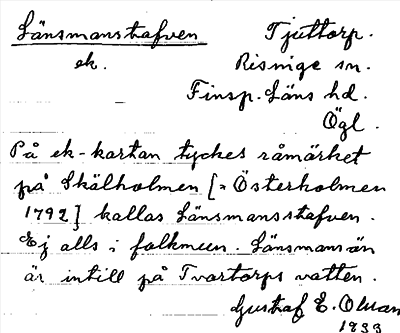 Länsmanstafven Tjuttorp.
ek. Risinge sn.
Finsp. Läns hd.
Ögl.
På ek-kartan tyckes råmärket
på Skälholmen [= Österholmen
1792] kallas Länsmansstafven.
Ej alls i folkmun. Länsmansän
är intill på Tvartorps vatten.
Gustaf E. Olsson
1933